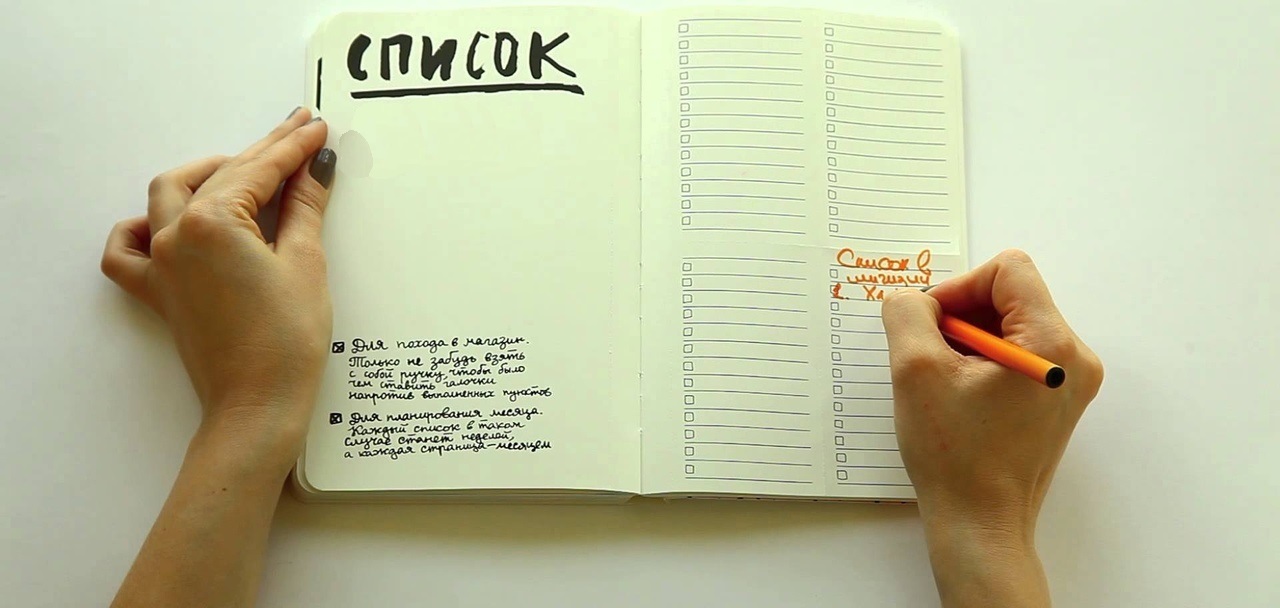 СПИСОК
Для похода в магазин.
Только не забудь взять
с собой ручку, чтобы было
чем ставить галочки
напротив выполненных пунктов
Для планирования месяца.
Каждый список в таком
случае станет неделей,
а каждая страница-месяцем
Список в
1.